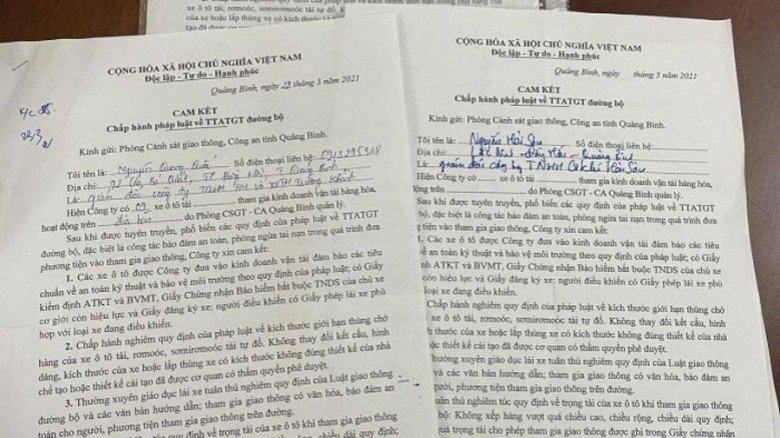 CỘNG HÒA XÃ HỘI CHỦ NGHĨA VIỆT NAM
Độc lập - Tự do - Hạnh phúc
Quảng Bình, ngày 29 tháng 3 năm 2021
CAM KẾT
Chấp hành pháp luật về TTATGT đường bộ
Kính gửi: Phòng Cảnh sát giao thông, Công an tỉnh Quảng Bình.
Tôi tên là: Nguyễn Quang Số điện thoại liên hệ:
Địa chỉ:
Là: giám đốc công ty TNHH TM
Hiện Công ty có 09 xe ô tô tải tham gia kinh doanh vận tải hàng hóa,
hoạt động trên do Phòng CSGT - CA Quảng Bình quản lý.
Sau khi được tuyên truyền, phổ biến các quy định của pháp luật về TTATGT
đường bộ, đặc biệt là công tác bảo đảm an toàn, phòng ngừa tai nạn trong quá trình đưa
phương tiện vào tham gia giao thông, Công ty xin cam kết:
1. Các xe ô tô được Công ty đưa vào kinh doanh vận tải đảm bảo các tiêu
chuẩn về an toàn kỹ thuật và bảo vệ môi trường theo quy định của pháp luật; có Giấy
kiểm định ATKT và BVMT, Giấy Chứng nhận Bảo hiểm bắt buộc TNDS của chủ xe
cơ giới còn hiệu lực và Giấy đăng ký xe; người điều khiển có Giấy phép lái xe phù
hợp với loại xe đang điều khiển.
2. Chấp hành nghiêm quy định của pháp luật về kích thước giới hạn thùng chở
hàng của xe ô tô tải, rơmoóc, sơmirơmoóc tải tự đổ. Không thay đổi kết cấu, hình
dáng, kích thước của xe hoặc lắp thùng xe có kích thước không đúng thiết kế của nhà
chế tạo hoặc thiết kế cải tạo đã được cơ quan có thẩm quyền phê duyệt.
3. Thường xuyên giáo dục lái xe tuân thủ nghiêm quy định của Luật giao thông
đường bộ và các văn bản hướng dẫn; tham gia giao thông có văn hóa, bảo đảm an
toàn cho người, phương tiện tham gia giao thông trên đường.
CỘNG HÒA XÃ HỘI CHỦ NGHĨA VIỆT NAM
Độc lập - Tự do - Hạnh phúc
Quảng Bình, ngày tháng 3 năm 2021
CAM KẾT
Chấp hành pháp luật về TTATGT đường bộ
Kính gửi: Phòng Cảnh sát giao thông, Công an tỉnh Quảng Bình.
Tôi tên là: Nguyễn Hải Sơn Số điện thoại liên hệ:
Địa chỉ: Quảng Bình
Là: giám đốc công ty TNHH Cơ khí Hải Sơn
Hiện Công ty có xe ô tô tải tham gia kinh doanh vận tải hàng hóa,
động trên do Phòng CSGT - CA Quảng Bình quản lý.
Sau khi được tuyên truyền, phổ biến các quy định của pháp luật về TTATGT
bộ, đặc biệt là công tác bảo đảm an toàn, phòng ngừa tai nạn trong quá trình đưa
tiện vào tham gia giao thông, Công ty xin cam kết:
1. Các xe ô tô được Công ty đưa vào kinh doanh vận tải đảm bảo các tiêu
về an toàn kỹ thuật và bảo vệ môi trường theo quy định của pháp luật; có Giấy
định ATKT và BVMT, Giấy Chứng nhận Bảo hiểm bắt buộc TNDS của chủ xe
còn hiệu lực và Giấy đăng ký xe; người điều khiển có Giấy phép lái xe phù
loại xe đang điều khiển.
Chấp hành nghiêm quy định của pháp luật về kích thước giới hạn thùng chở
xe ô tô tải, rơmoóc, sơmirơmoóc tải tự đổ. Không thay đổi kết cấu, hình
thước của xe hoặc lắp thùng xe có kích thước không đúng thiết kế của nhà
hoặc thiết kế cải tạo đã được cơ quan có thẩm quyền phê duyệt.
Thường xuyên giáo dục lái xe tuân thủ nghiêm quy định của Luật giao thông
và các văn bản hướng dẫn; tham gia giao thông có văn hóa, bảo đảm an
người, phương tiện tham gia giao thông trên đường.
tuân thủ nghiêm túc quy định về tải trọng của xe ô tô khi tham gia giao thông
bộ: Không xếp hàng vượt quá chiều cao, chiều rộng, chiều dài quy định;
quá trọng tải cho phép tham gia giao thông được ghi trong Giấy chứng nhận